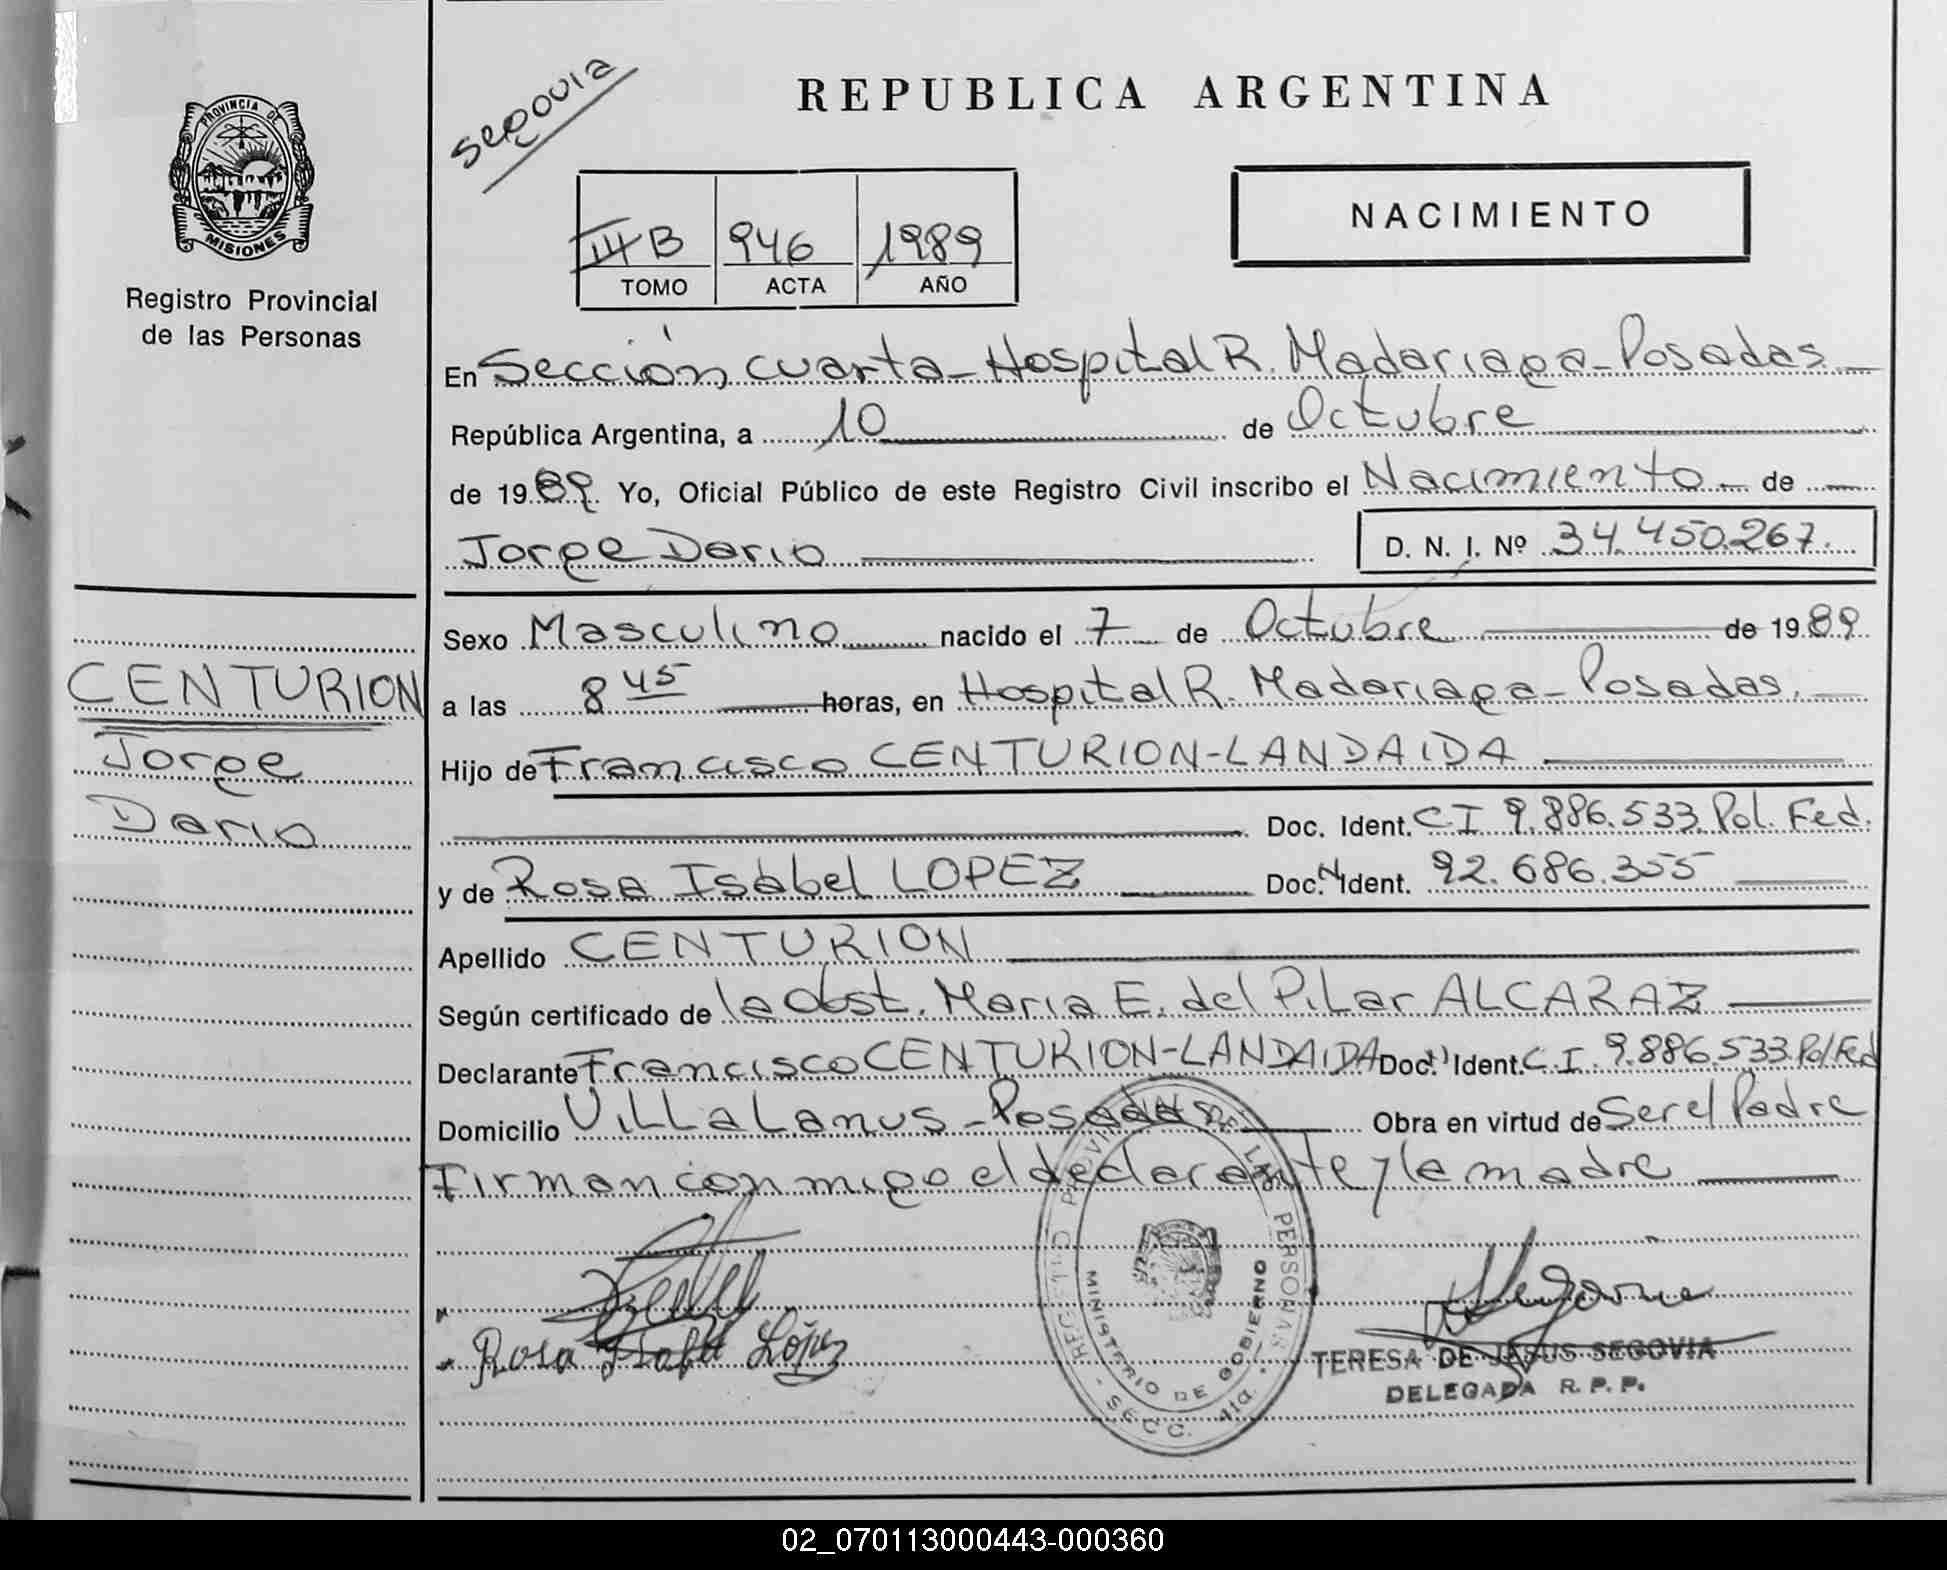 segovia
REPUBLICA ARGENTINA
PROVINCIA DE
MISIONES
Registro Provincial
de las Personas
NACIMIENTO
III B 946 1989
TOMO ACTA AÑO
En Sección cuarta - Hospital R. Madariaga - Posadas
República Argentina, a 10 de Octubre
de 1989. Yo, Oficial Público de este Registro Civil inscribo el Nacimiento - de
Jorge Dario D. N. I. Nº 34.450.267.
Sexo Masculino nacido el 7 de Octubre de 1989
CENTURION
Jorge
Dario
a las 8 45 horas, en Hospital R. Madariaga - Posadas.
Hijo de Francisco CENTURION-LANDAIDA
Doc. Ident. CI 9.886.533. Pol. Fed.
y de Rosa Isabel LOPEZ Doc. N Ident. 92.686.355
Apellido CENTURION
Según certificado de la Obst. Maria E. del Pilar ALCARAZ
Declarante Francisco CENTURION-LANDAIDA Doc. Ident. C.I. 9.886.533 Pol Fed
Domicilio Villa Lanus - Posadas Obra en virtud de Ser el Padre
Firman conmigo el declarante y la madre
Rosa Isabel López
REGISTRO PROVINCIAL DE LAS PERSONAS
MINISTERIO DE GOBIERNO
- SECC. 4ta. -
TERESA DE JESUS SEGOVIA
DELEGADA R. P. P.
02_070113000443-000360